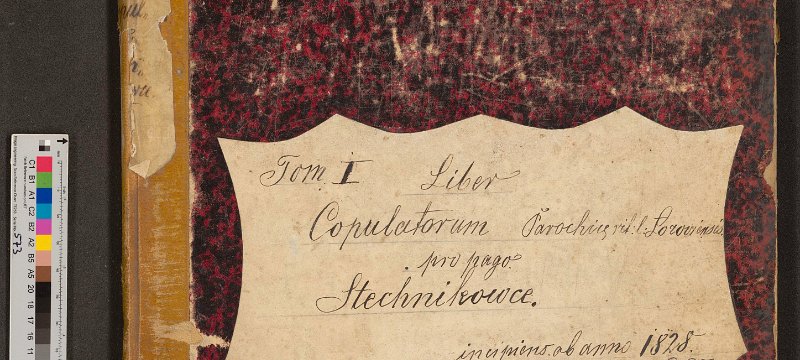 Tom I Liber
Copulatorum Parochiæ rit: l: Łozoviensis
pro pago
Stechnikowce.
incipiens ab anno 1828.
573
C1 B1 A1 C2 B2 A2 B5 A5 20 18 17 16 11